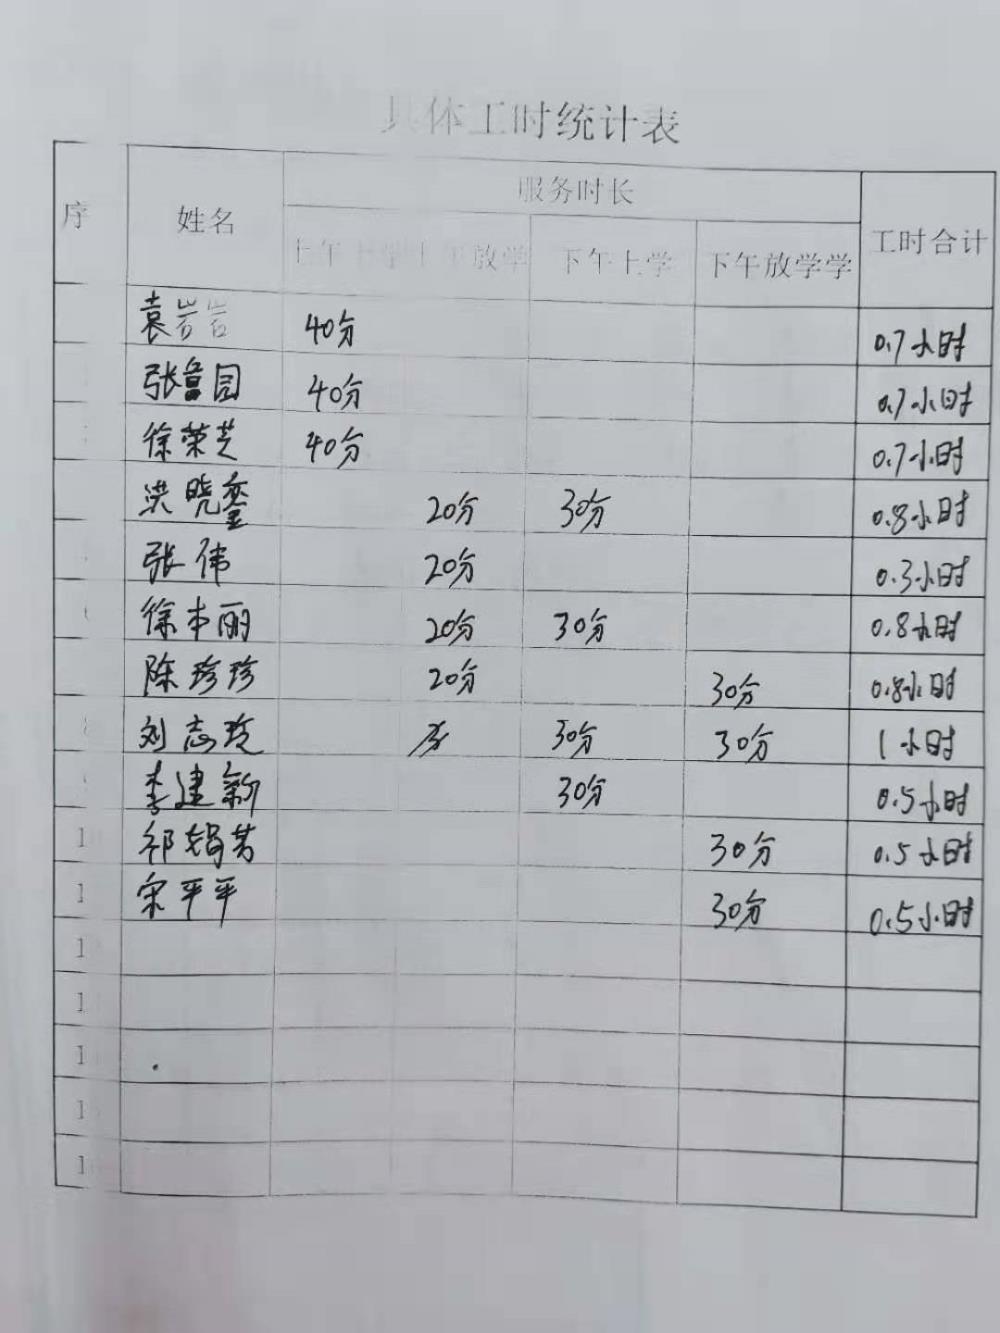 具体工时统计表
序 姓名 服务时长 工时合计
上午上学 上午放学 下午上学 下午放学学
袁岩岩 40分 0.7小时
张鲁园 40分 0.7小时
徐荣芝 40分 0.7小时
洪晓 20分 30分 0.8小时
张伟 20分 0.3小时
6 徐本丽 20分 30分 0.8小时
陈珍珍 20分 30分 0.8小时
8 刘志玲 30分 30分 1小时
李建新 30分 0.5小时
10 祁娟芳 30分 0.5小时
1 宋平平 30分 0.5小时
1
1
1
1
1